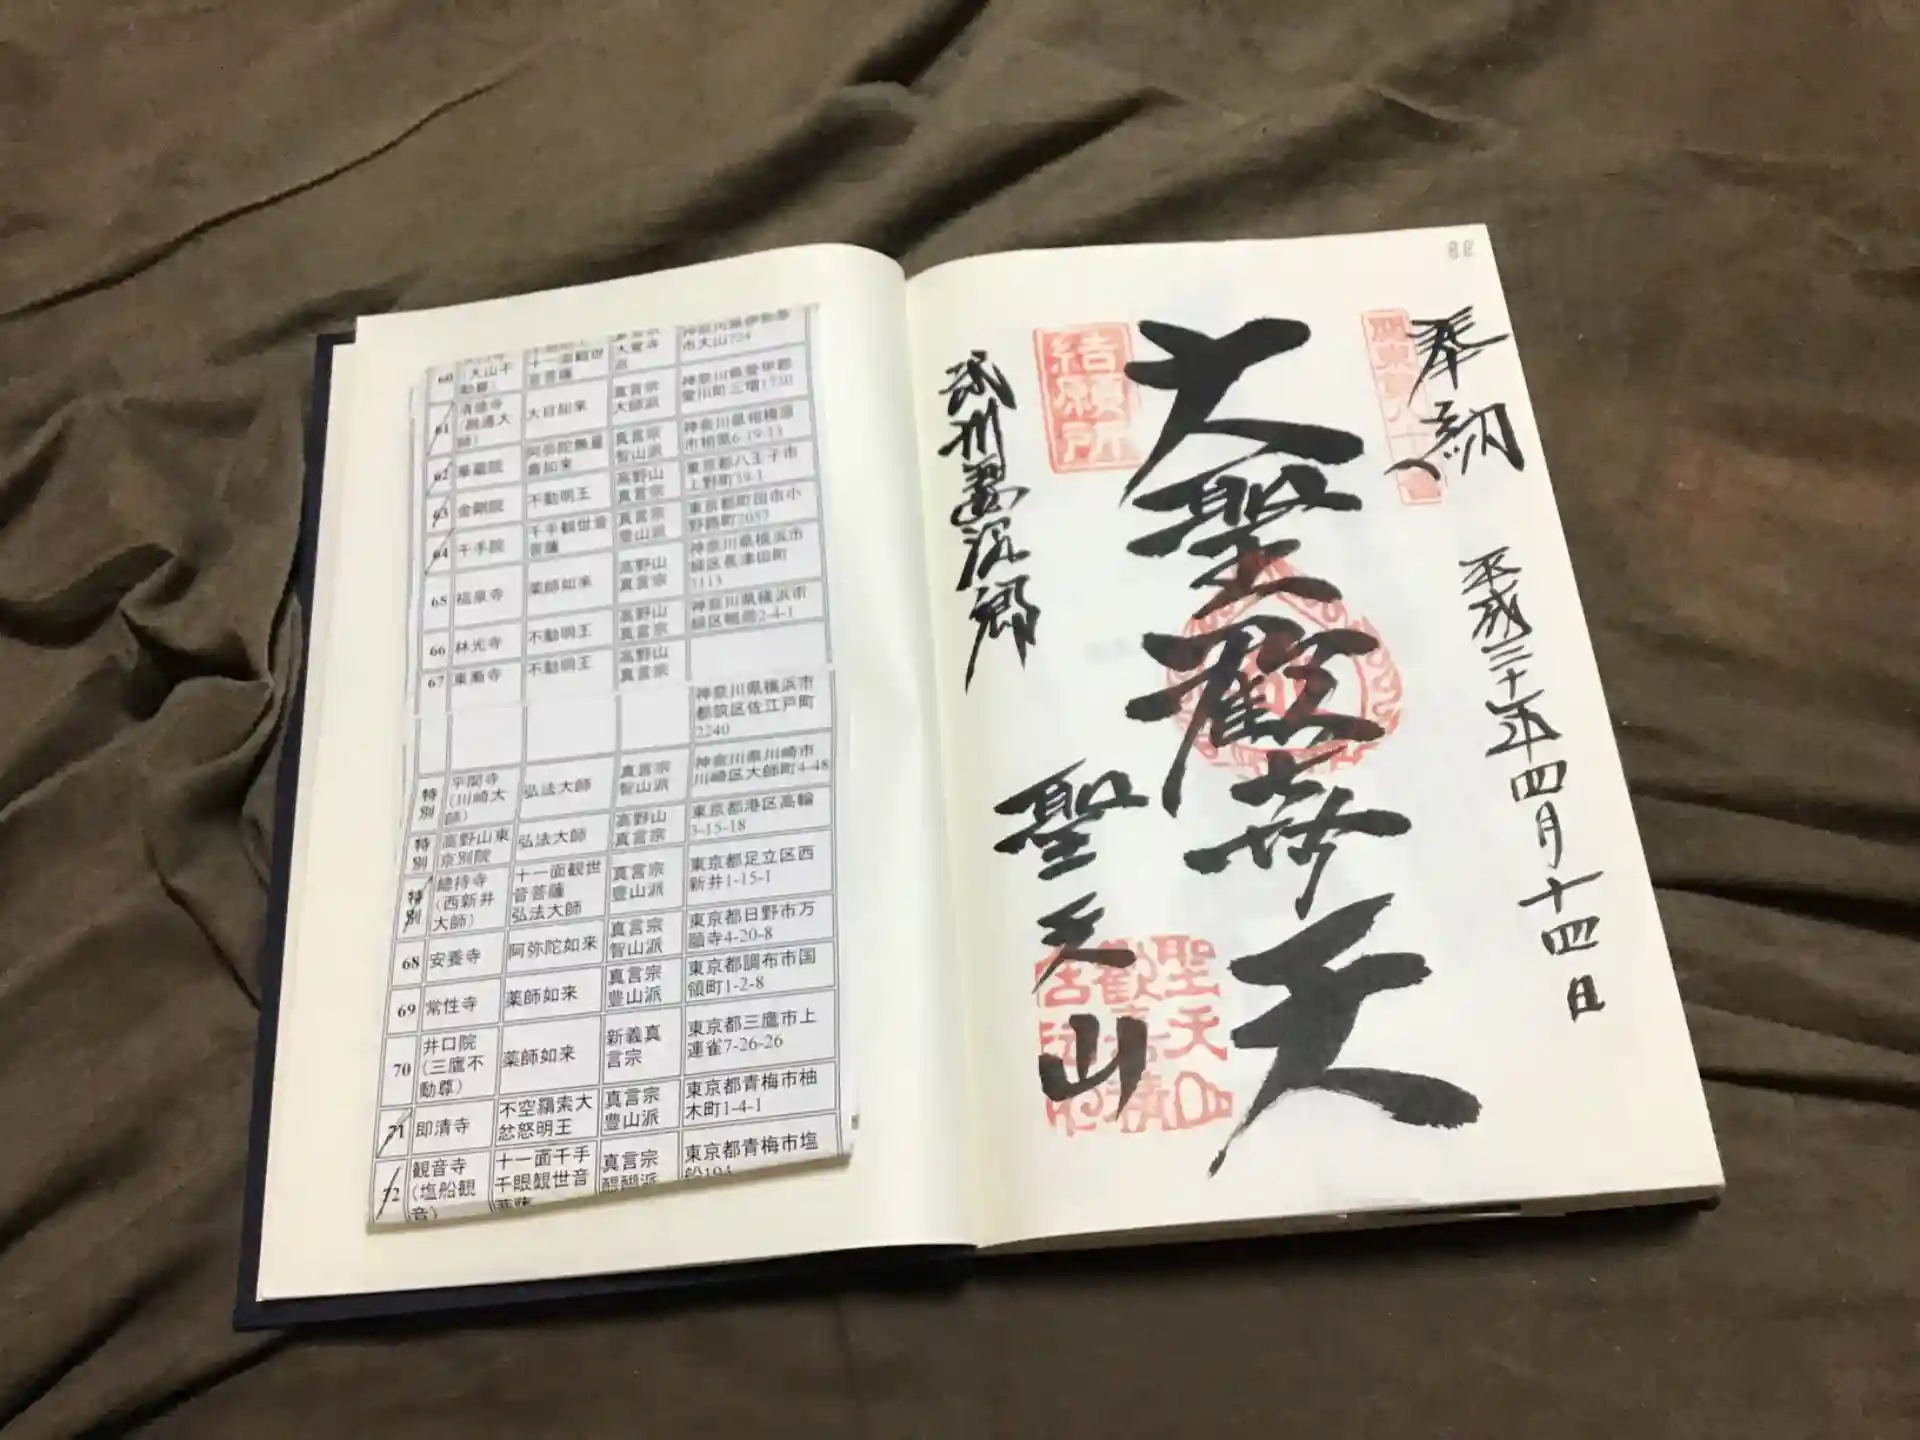 60
(大山不動尊)
十一面観世音菩薩
大覚寺派
市大山724
61
清徳寺(融通大師)
大日如来
真言宗大師派
神奈川県愛甲郡愛川町三増1730
62
華蔵院
阿弥陀無量寿如来
真言宗智山派
神奈川県相模原市相原6-19-13
63
金剛院
不動明王
高野山真言宗
東京都八王子市上野町39-1
64
千手院
千手観世音菩薩
真言宗豊山派
東京都町田市小野路町2057
65
福泉寺
薬師如来
高野山真言宗
神奈川県横浜市緑区長津田町3113
66
林光寺
不動明王
高野山真言宗
神奈川県横浜市緑区鴨居2-4-1
67
東漸寺
不動明王
高野山真言宗
神奈川県横浜市都筑区佐江戸町2240
特別
平間寺(川崎大師)
弘法大師
真言宗智山派
神奈川県川崎市川崎区大師町4-48
特別
高野山東京別院
弘法大師
高野山真言宗
東京都港区高輪3-15-18
特別
總持寺(西新井大師)
十一面観世音菩薩 弘法大師
真言宗豊山派
東京都足立区西新井1-15-1
68
安養寺
阿弥陀如来
真言宗智山派
東京都日野市万願寺4-20-8
69
常性寺
薬師如来
真言宗豊山派
東京都調布市国領町1-2-8
70
井口院(三鷹不動尊)
薬師如来
新義真言宗
東京都三鷹市上連雀7-26-26
71
即清寺
不空羂索大忿怒明王
真言宗豊山派
東京都青梅市柚木町1-4-1
72
観音寺(塩船観音)
十一面千手千眼観世音菩薩
真言宗醍醐派
東京都青梅市塩船194
88
奉納
平成三十一年四月十四日
大聖歓喜天
結願所
武州妻沼郷
聖天山
聖天山